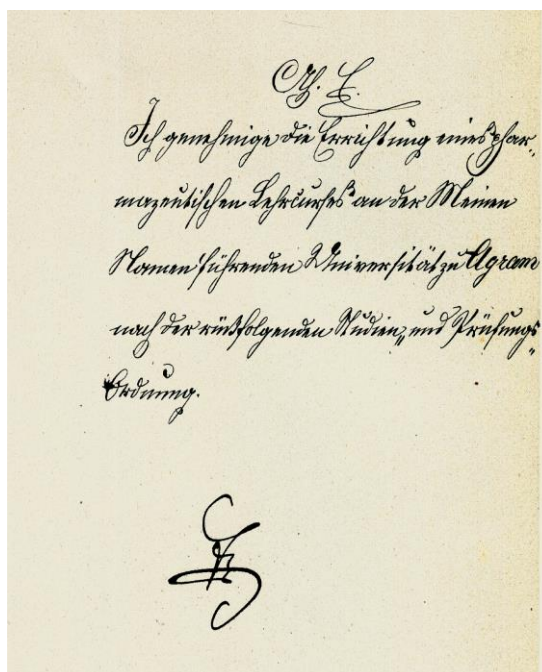 A. E.
Ich genehmige die Errichtung eines phar„
mazeutischen Lehrcurses an der Meinen
Namen führenden Universität zu Agram
nach der rückfolgenden Studien„und Prüfungs„
Ordnung.